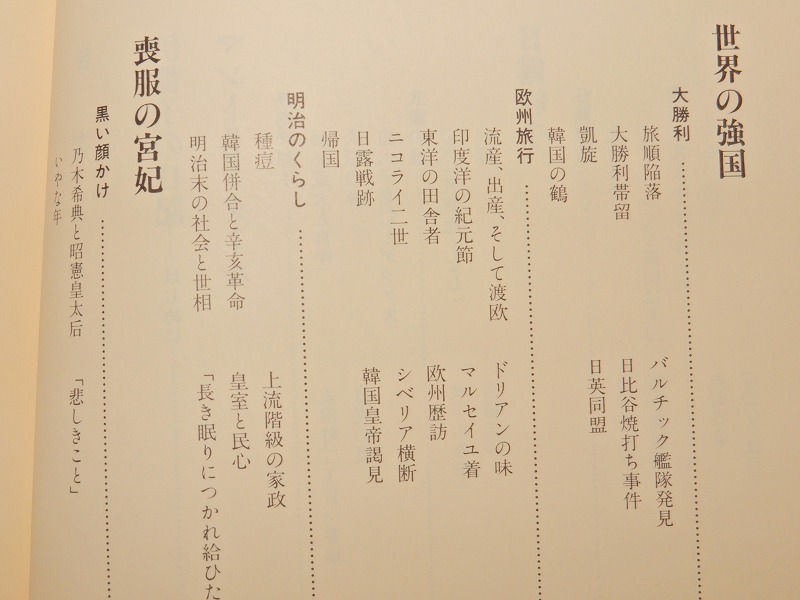 世界の強国
大勝利
旅順陥落
バルチック艦隊発見
大勝利帯留
日比谷焼打ち事件
凱旋
日英同盟
韓国の鶴
欧州旅行
流産、出産、そして渡欧
ドリアンの味
印度洋の紀元節
マルセイユ着
東洋の田舎者
欧州歴訪
ニコライ二世
シベリア横断
日露戦跡
韓国皇帝謁見
帰国
明治のくらし
種痘
上流階級の家政
韓国併合と辛亥革命
皇室と民心
明治末の社会と世相
「長き眠りにつかれ給ひた
喪服の宮妃
黒い顔かけ
乃木希典と昭憲皇太后
「悲しきこと」
いやな年